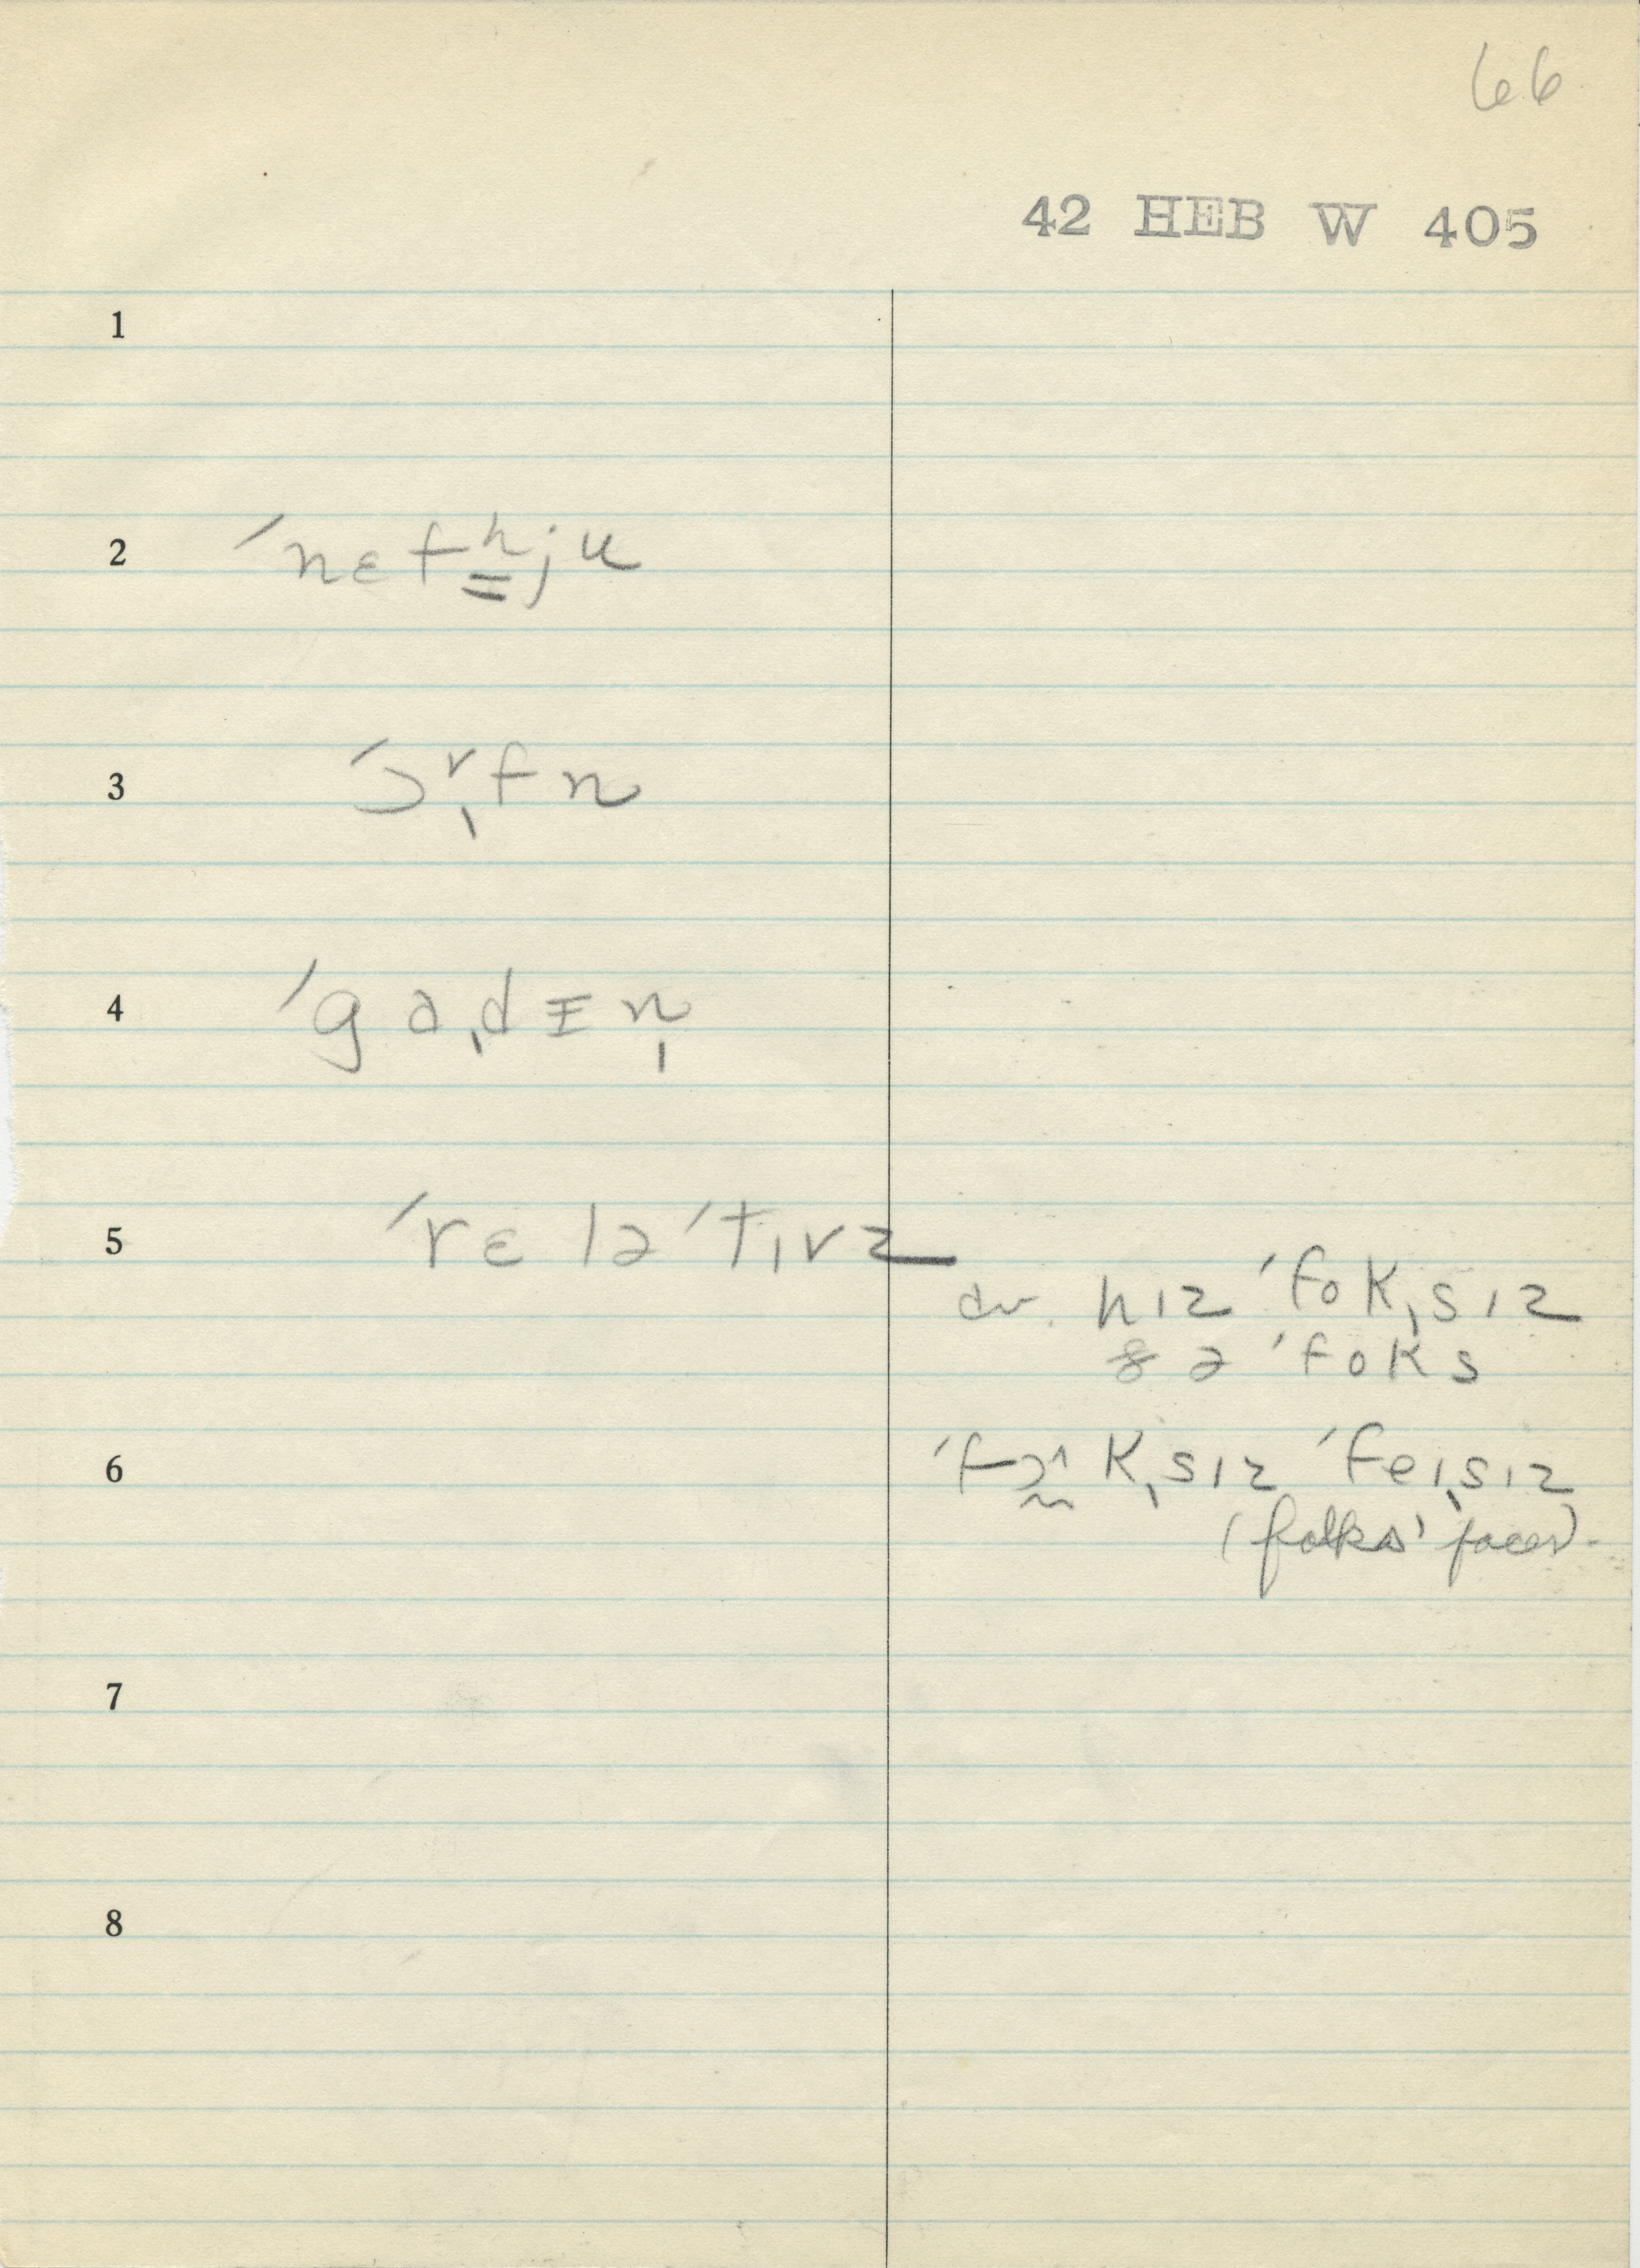 66
42 HEB W 405
1
2 ˈnɛfʰju
3 ˈɔʳˌfn
4 ˈgɑˌdɪn̩
5 ˈrɛləˈtɪvz
cv. hɪz ˈfokˌsɪz
ðə ˈfoks
6 ˈfɔ^kˌsɪz ˈfeɪˌsɪz
(folks' faces).
7
8